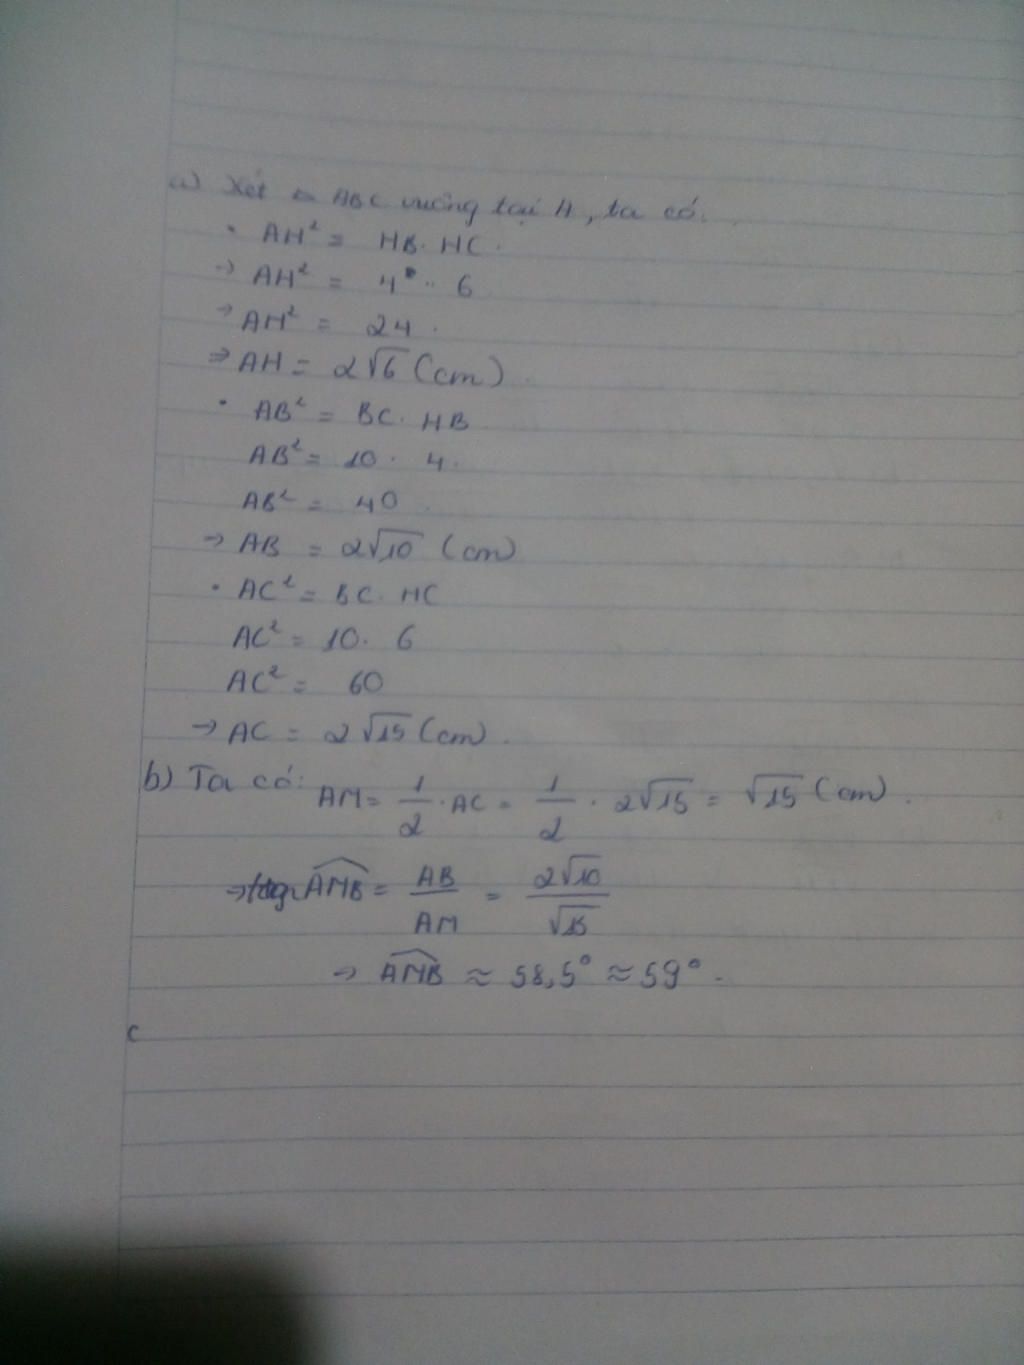 a) Xét △ ABC vuông tại A, ta có:
• AH² = HB. HC.
→ AH² = 4 . 6
→ AH² = 24.
⇒ AH = 2√6 (cm).
• AB² = BC. HB
AB² = 10 . 4.
AB² = 40.
→ AB = 2√10 (cm)
• AC² = BC. HC
AC² = 10. 6
AC² = 60
→ AC = 2√15 (cm).
b) Ta có: AM = 1/2 . AC = 1/2 . 2√15 = √15 (cm).
→ AMB̂ = AB/AM = 2√10/√15
→ AMB̂ ≈ 58,5° ≈ 59°.
c